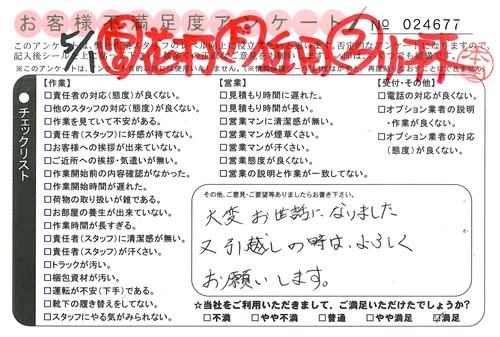 お客様不満足度アンケート
№ 024677
5/1
※このアンケートは
【作業】
□責任者の対応(態度)が良くない。
□他のスタッフの対応(態度)が良くない。
□作業を見ていて不安がある。
□責任者(スタッフ)に好感が持てない。
□お客様への挨拶が出来ていない。
□ご近所への挨拶・気遣いが無い。
□作業開始前の内容確認がなかった。
□作業開始時間が遅れた。
□荷物の取り扱いが雑である。
□お部屋の養生が出来ていない。
□作業時間が長すぎる。
□責任者(スタッフ)に清潔感が無い。
□責任者(スタッフ)が汗くさい。
□トラックが汚い。
□梱包資材が汚い。
□運転が不安(下手)である。
□靴下の履き替えをしてない。
□スタッフにやる気がみられない。
【営業】
□見積もり時間に遅れた。
□見積もり時間が長い。
□営業マンに清潔感が無い。
□営業マンが煙草くさい。
□営業マンが汗くさい。
□営業態度が良くない。
□営業の説明と作業が一致してない。
【受付・その他】
□電話の対応が良くない。
□オプション業者の説明
・作業が良くない。
□オプション業者の対応
(態度)が良くない。
●チェックリスト
その他、ご意見・ご要望等ありましたらお書き下さい。
大変お世話になりました
又引越しの時は、よろしく
お願いします。
☆当社をご利用いただきまして、ご満足いただけたでしょうか?
□不満 □やや不満 □普通 □やや満足 ☑満足